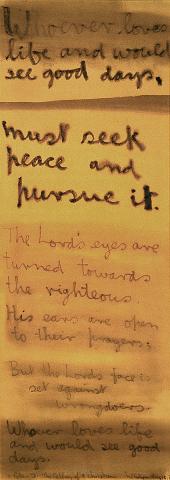 Whoever loves
life and would
see good days,
must seek
peace and
pursue it.
The Lord's eyes are
turned towards
the righteous.
His ears are open
to their prayers;
But the Lord's face is
set against
wrongdoers.
Whoever loves life
and would see good
days.